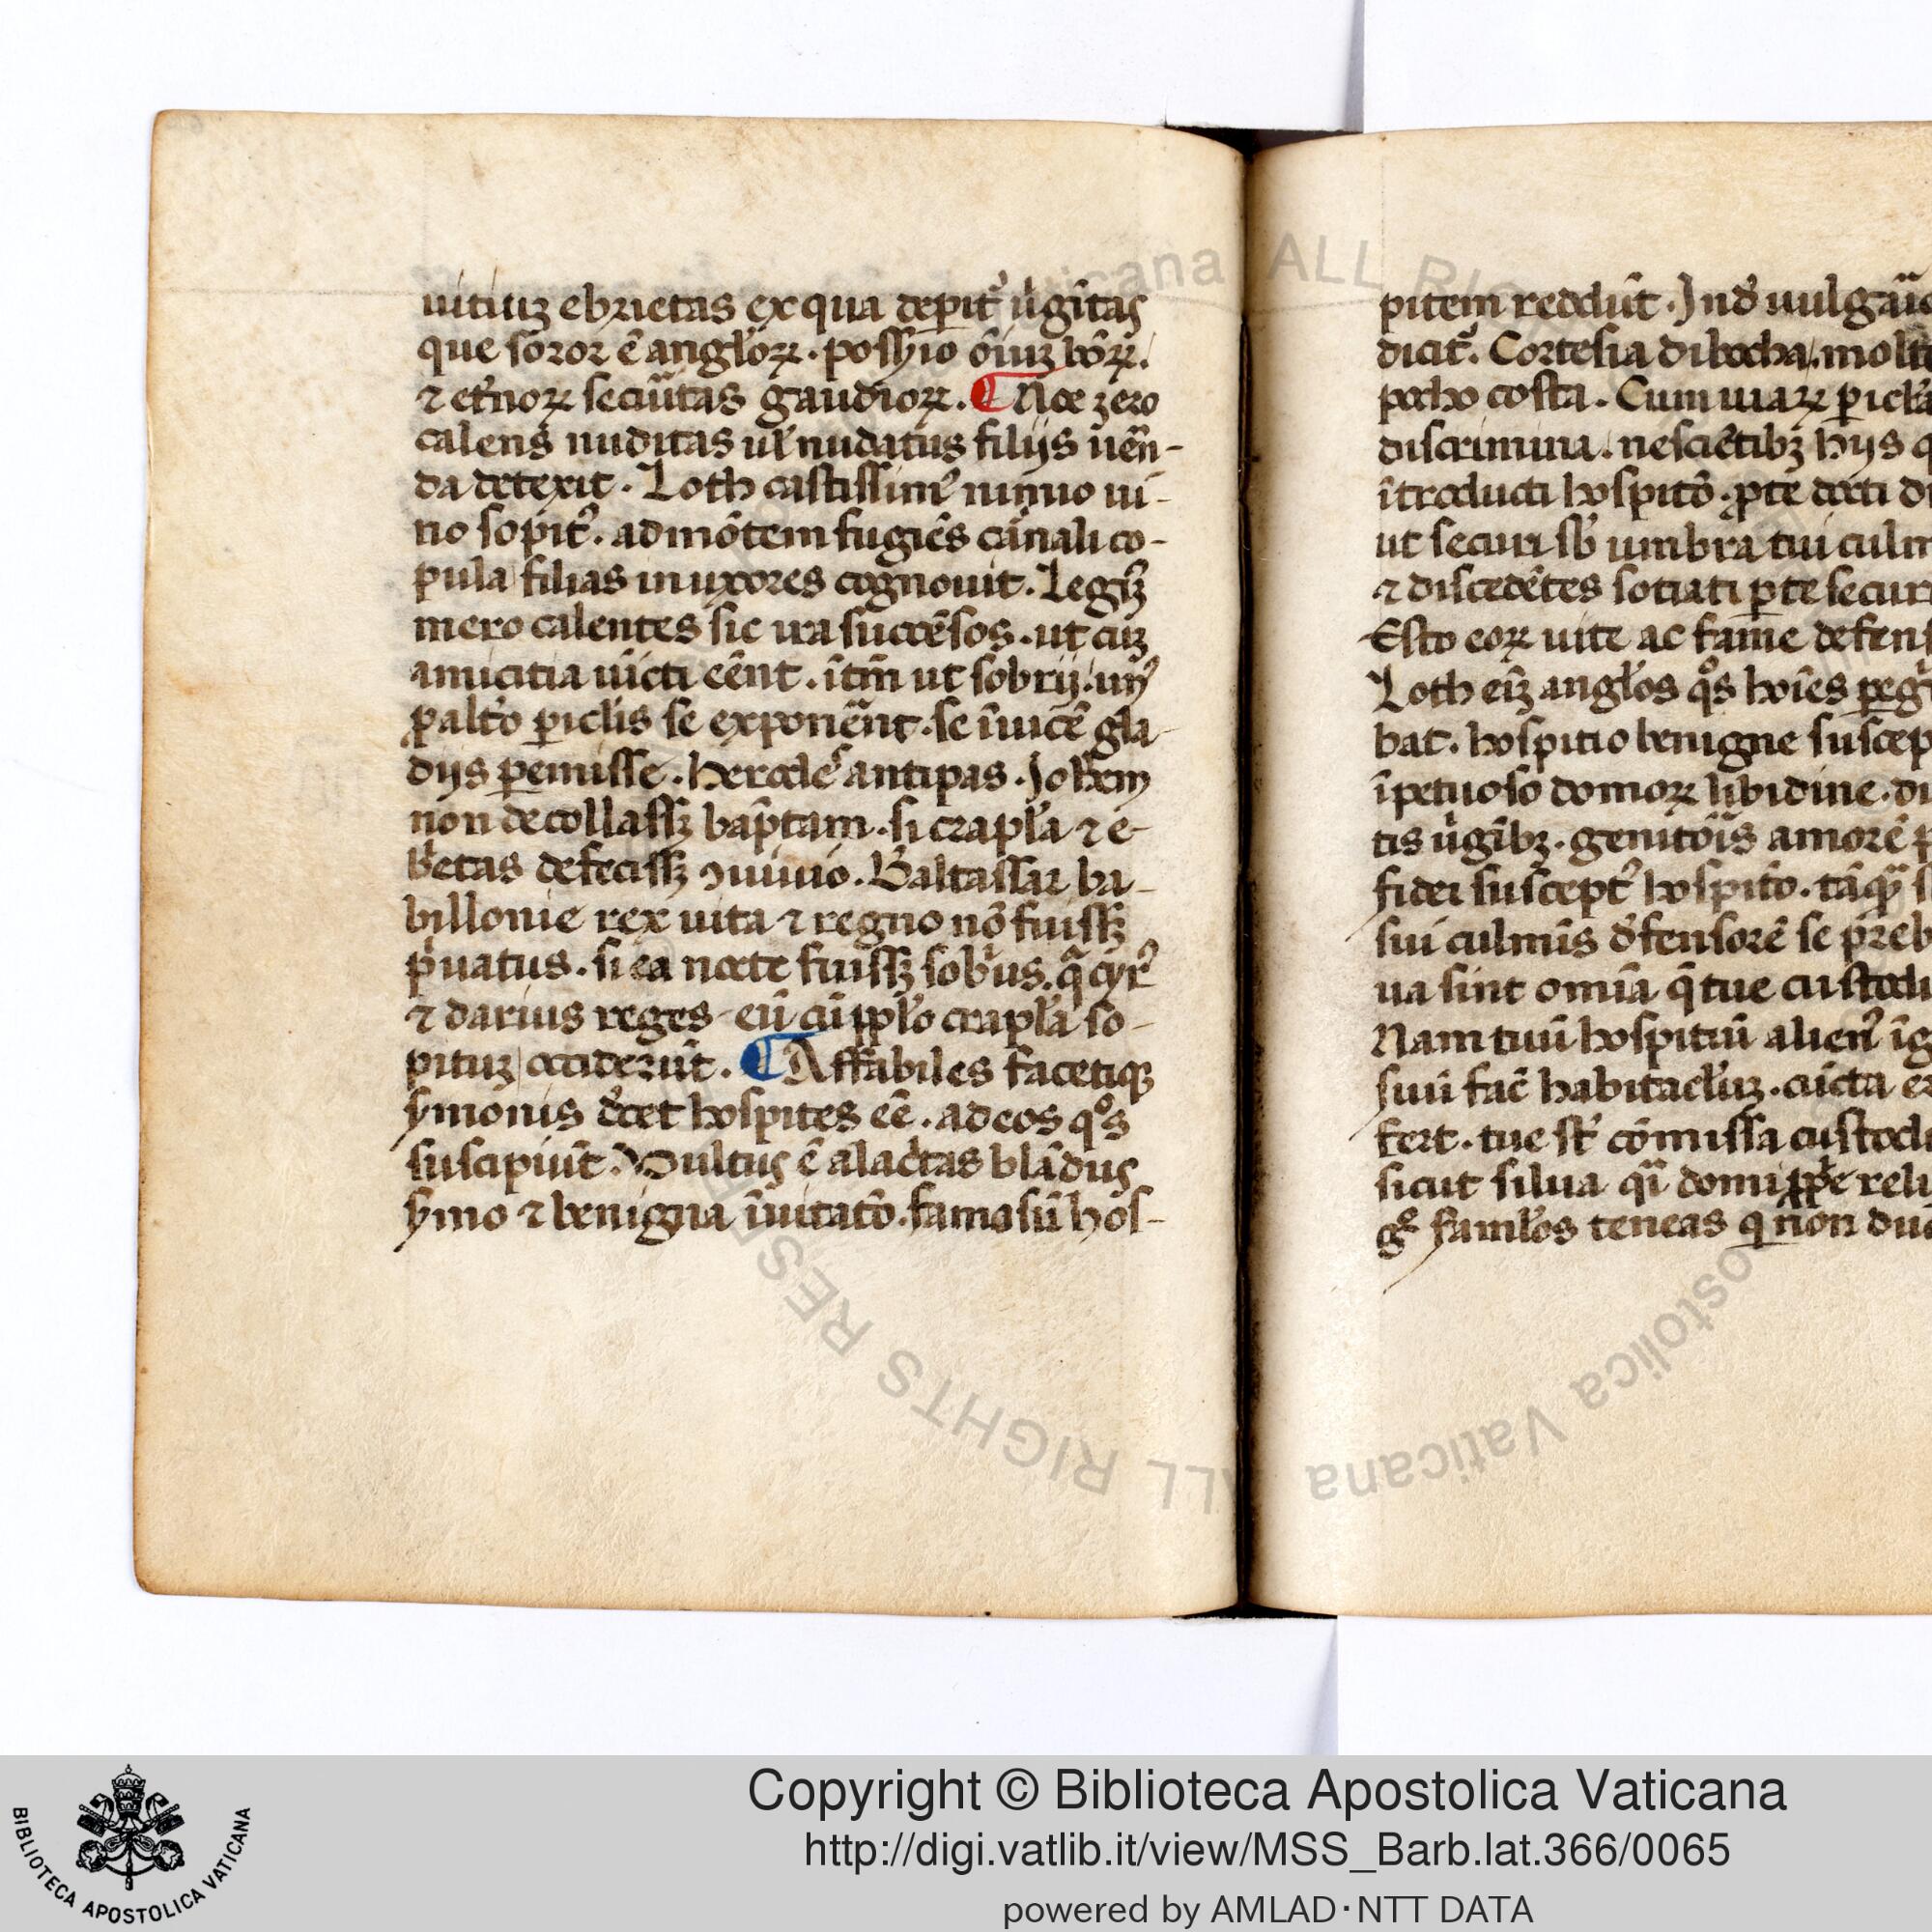 uitiuʒ ebrietas ex qua deꝑit᷑ ũgĩtas
que soror ẽ angl̃oꝝ. possẽio õiuʒ bõꝝ.
⁊ et̃noꝝ secũitas gaudioꝝ. ¶ Noe zero
calens nuditas ul̃ nudatus filijs uẽn-
da detexit. Loth castissimꝰ nimio ui-
no sopitꝰ. ad mõtem fugiẽs cãnali co-
pula filias in uxores cognouit. Legiʒ̃
mero calentes sic ira succẽsos. ut cuʒ
amicitia iũcti eẽnt. ĩtm̃ ut sobrij.
ꝓ alt̃o ꝑicl̃is se exponẽnt. se ĩuicẽ gla-
dijs ꝑemisse. Herodeˢ antipas. Joh̃em
non decollassʒ bap̃tam. si crapl̃a ⁊ e-
br̃etas defecissʒ ꝯuiuio. Baltassar ba-
billonie rex uita ⁊ regno nõ fuissʒ
p̃uatus. si ea nocte fuissʒ sobr̃us. q̃ cyrꝰ
⁊ darius reges eũ cũ ppl̃o crapl̃a so-
pituʒ occiderũt. ¶ Affabiles facetiqꝫ
ymonis d̃cet hospites eẽ. ad eos qͦs
suscipiũt. Vultus ẽ alac̃tas blãdus
ymo ⁊ benigna ĩuitatõ. famosũ hos-
pitem reddũt. Jnd̃ uulga
dicit᷑. Cortesia di bocha. molt
pocho costa. Cum uiaꝝ ꝑicl̃a
discrimina. nesciẽtibʒ hijs
ĩtroducti hospitõ. ꝓ te docti
ut securi sb̃ umbra tui
⁊ discedẽtes sotiati ꝑ te secur
Esto eoꝝ uite ac fame defens
Loth eñʒ angl̃os qͦs hoĩes
bat. hospitio benigne suscep
ĩpetuoso domoꝝ libidine.
tis ũgĩbʒ. genitoĩs amorẽ
fidei susceptꝰ hospitõ. tãqͣʒ
sui culmĩs d̃fensorẽ se p̃reb
ua sint omĩa q̃ tue custodi
Nam tuũ hospitiũ alienꝰ
suũ fac̃ habitacl̃uʒ. cũcta
fert. tue st̃ cõmissa custodi
sicut silua qͣi domi ꝓp̃e
gͦ faml̃os teneas q̃ non
Copyright © Biblioteca Apostolica Vaticana
http://digi.vatlib.it/view/MSS_Barb.lat.366/0065
powered by AMLAD·NTT DATA
BIBLIOTECA APOSTOLICA VATICANA